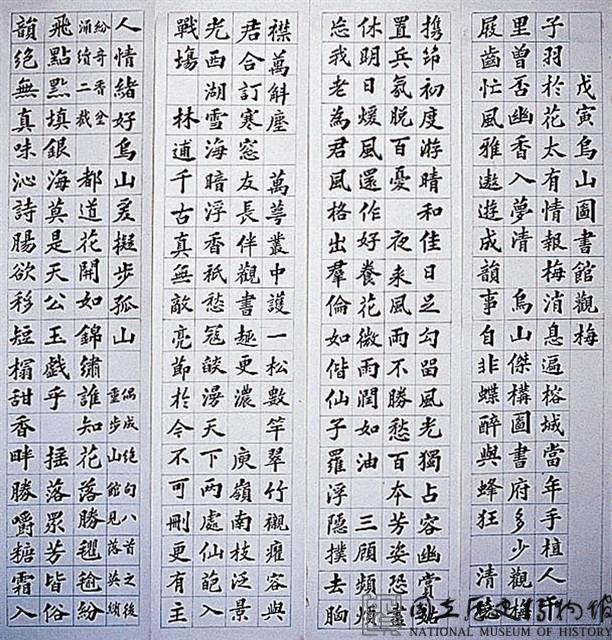 戊寅烏山圖書館觀梅
子羽於花太有情報梅消息遍榕城當年手植人千
里曾否幽香入夢清 烏山傑構圖書府多少觀梅
屐齒忙風雅遨遊成韻事自非蝶醉與蜂狂 清
携筇初度游晴和佳日足勾留風光獨占容幽賞
置兵氛脫百憂 夜來風雨不勝愁百本芳姿恐盡
休明日煖風還作好養花微雨潤如油 三顧頻煩
忘我老為君風格出羣倫如偕仙子羅浮隱撲去胸
襟萬斛塵 萬萼叢中護一松數竿翠竹襯雍容與
君合訂寒窓友長伴觀書趣更濃 庾嶺南枝泛景
光西湖雪海暗浮香祇愁寇燄漫天下兩處仙葩入
戰場 林逋千古真無敵亮節於今不可刪更有主
人情緒好烏山差擬步孤山
偶成絕句八首之後
重步山館見落英之繽
紛奇香坌
涌續二截
都道花開如錦繡誰知花落勝氍毹紛
飛點點填銀海莫是天公玉戲乎 搖落眾芳皆俗
韻絕無真味沁詩腸欲移短榻甜香畔勝嚼糖霜入
國立歷史博物館
NATIONAL MUSEUM OF HISTORY